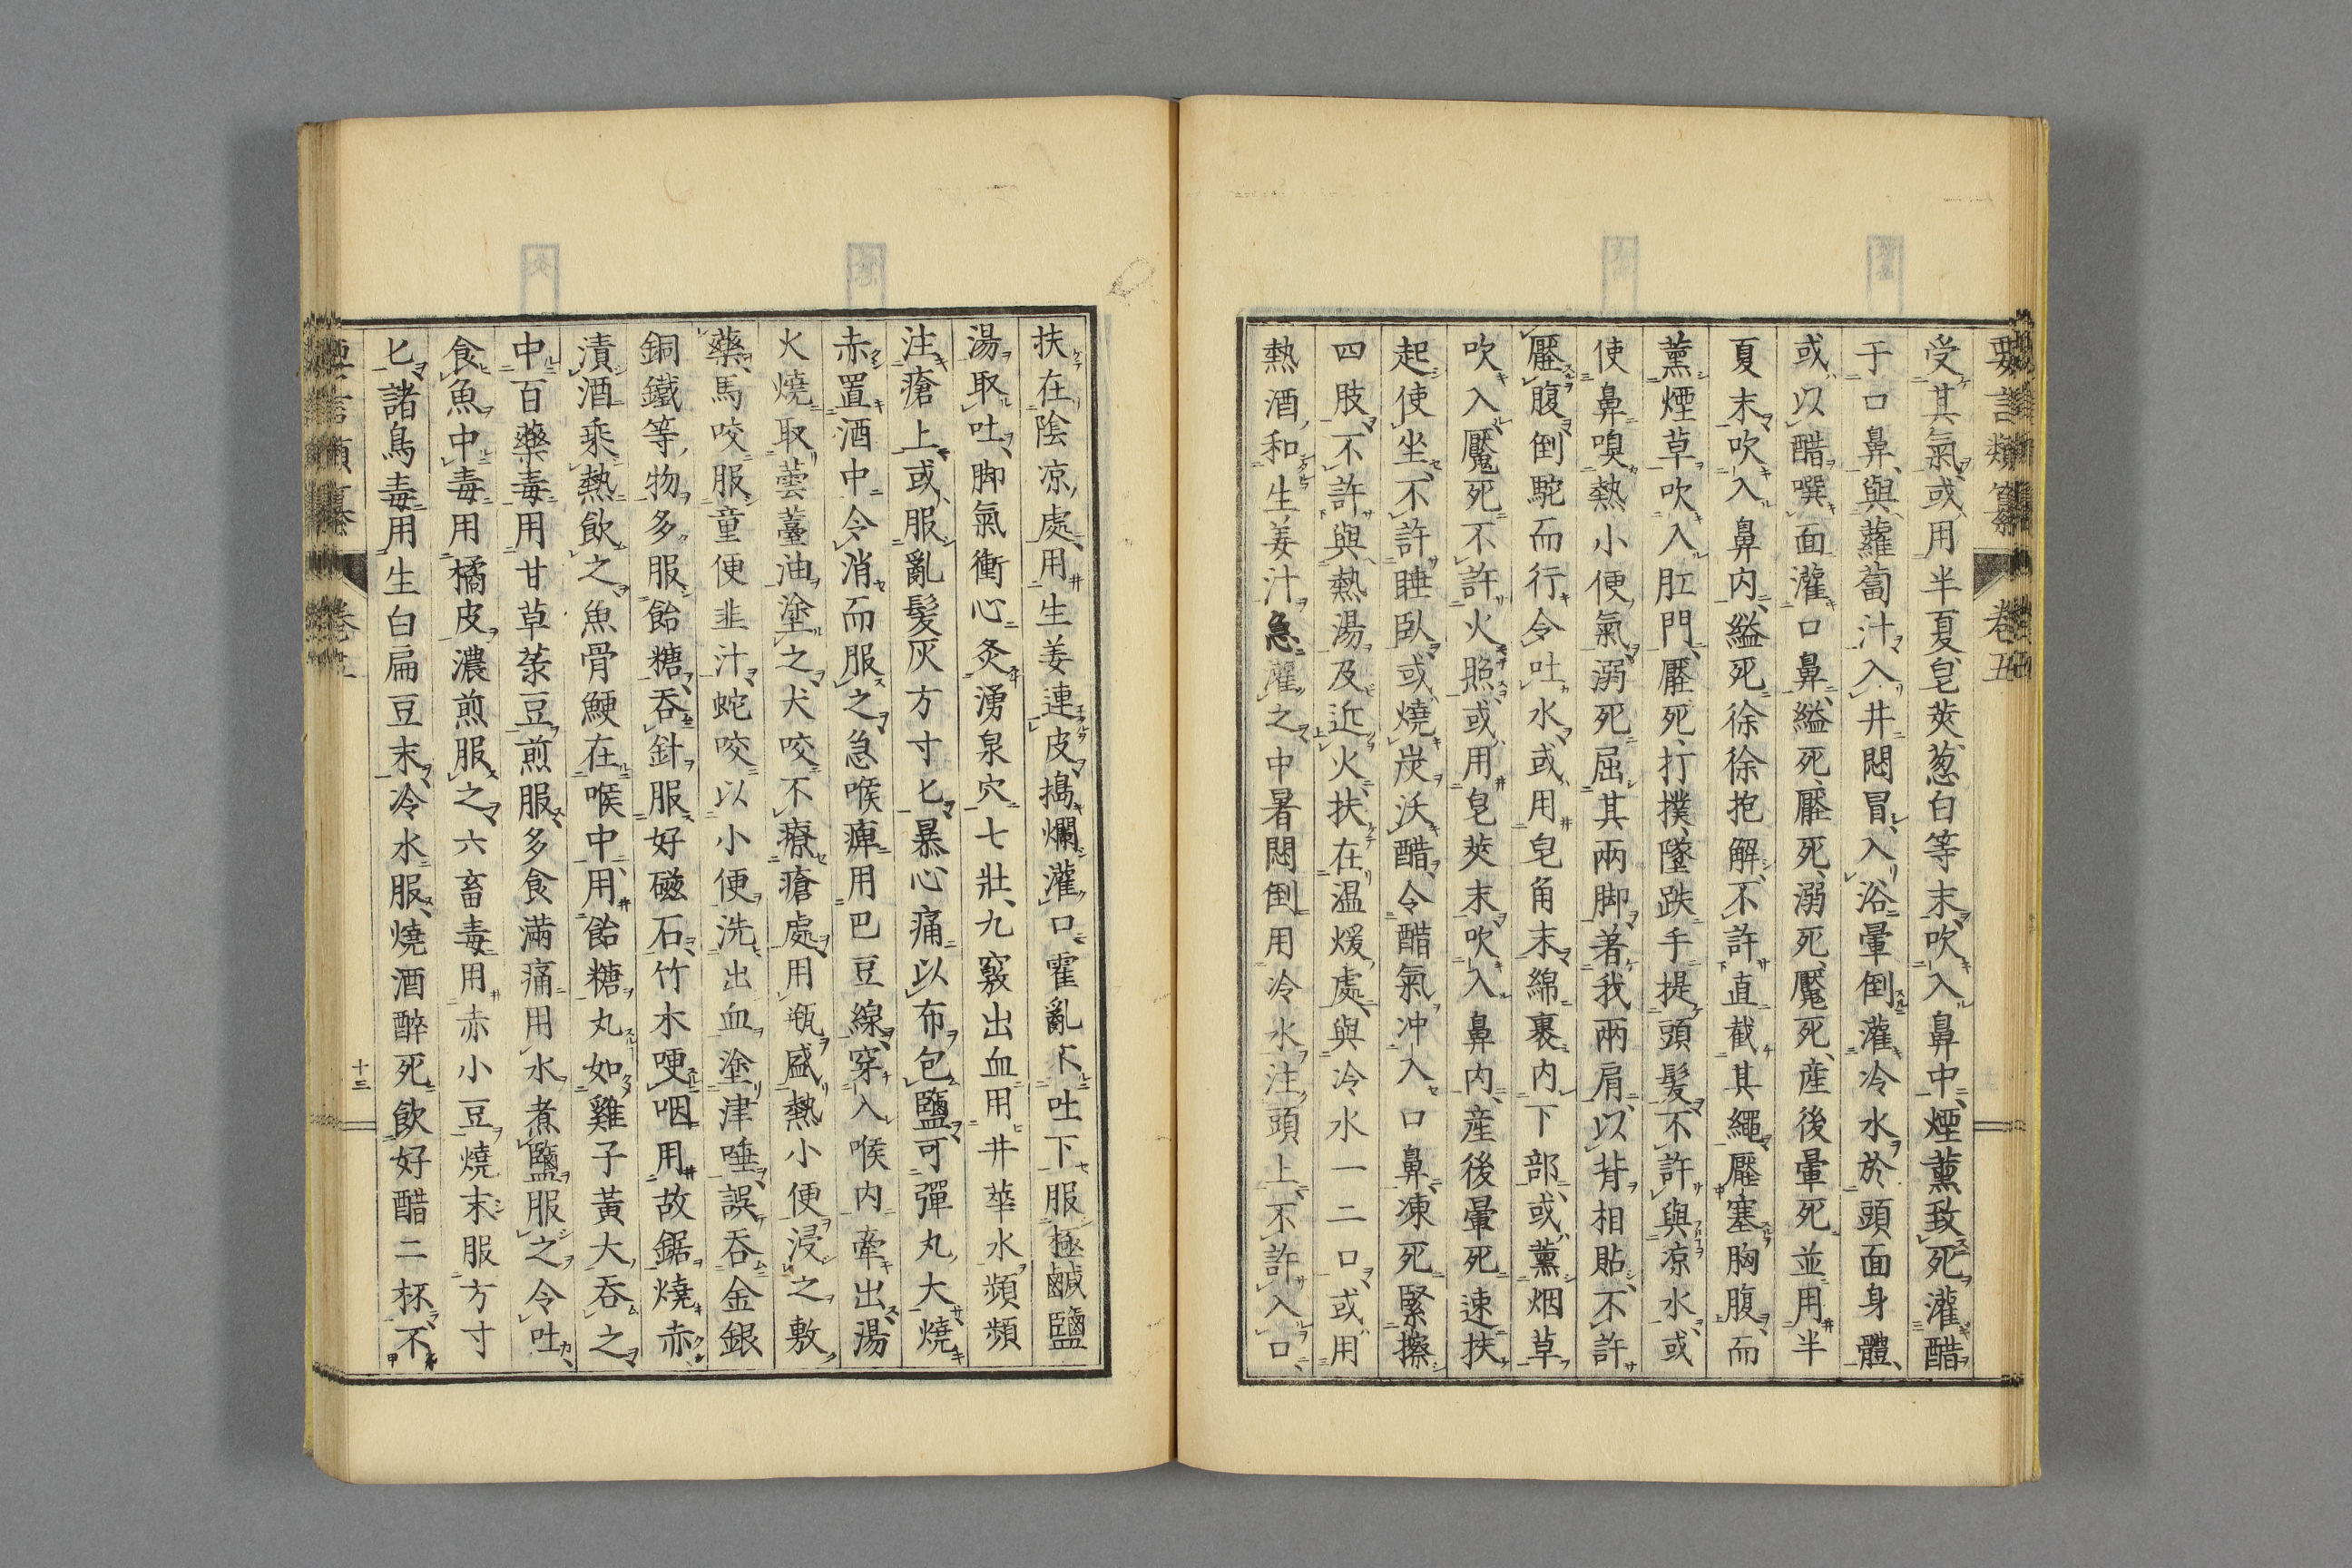 要言類纂 卷五
受其氣或用半夏皂莢葱白等末吹入鼻中煙薰致死灌醋
于口鼻與蘿蔔汁入井悶冒入浴暈倒灌冷水於頭面身體
或以醋噀面灌口鼻縊死壓死溺死魘死産後暈死並用半
夏末吹入鼻内縊死徐徐抱解不許直截其繩壓塞胸腹而
薰煙草吹入肛門壓死打撲墜跌手提頭髪不許與凉水或
使鼻嗅熱小便氣溺死屈其兩脚著我兩肩以背相貼不許
壓腹倒駝而行令吐水或用皂角末綿裹内下部或薰烟草
吹入魘死不許火照或用皂莢末吹入鼻内産後暈死速扶
起使坐不許睡臥或燒炭沃醋令醋氣冲入口鼻凍死緊擦
四肢不許與熱湯及近火扶在温煖處與冷水一二口或用
熱酒和生姜汁急灌之中暑悶倒用冷水注頭上不許入口
扶在陰凉處用生姜連皮搗爛灌口霍亂不吐下服極鹹鹽
湯取吐脚氣衝心灸湧泉穴七壯九竅出血用井華水頻頻
注瘡上或服亂髪灰方寸匕暴心痛以布包鹽可彈丸大燒
赤置酒中令消而服之急喉痺用巴豆線穿入喉内牽出湯
火燒取蕓薹油塗之犬咬不療瘡處用瓶盛熱小便浸之敷
藥馬咬服童便韭汁蛇咬以小便洗出血塗津唾誤吞金銀
銅鐵等物多服飴糖吞針服好磁石竹木哽咽用故鋸燒赤
漬酒乘熱飲之魚骨鯁在喉中用飴糖丸如雞子黃大吞之
中百藥毒用甘草菉豆煎服多食滿痛用水煮鹽服之令吐
食魚中毒用橘皮濃煎服之六畜毒用赤小豆燒末服方寸
匕諸鳥毒用生白扁豆末冷水服燒酒醉死飲好醋二杯不
十三